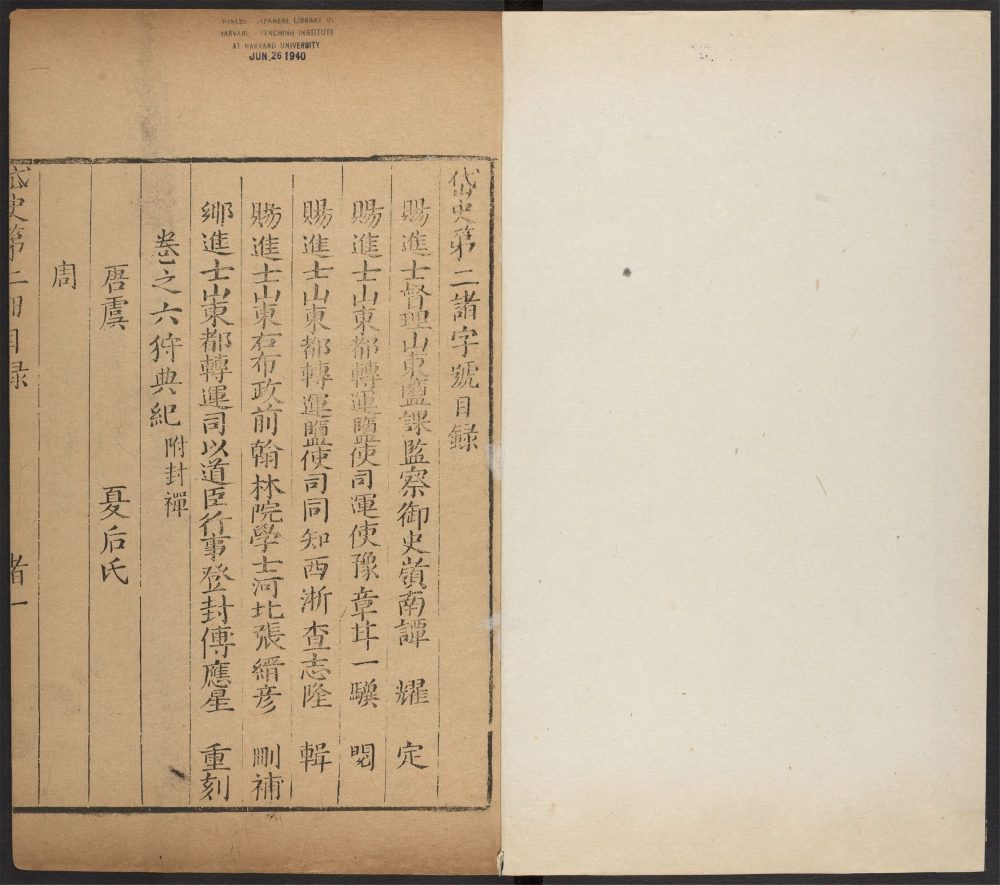 CHINESE JAPANESE LIBRARY OF
HARVARD YENCHING INSTITUTE
AT HARVARD UNIVERSITY
JUN 26 1940
岱史第二諸字號目録
賜進士督理山東鹽課監察御史嶺南譚 耀 定
賜進士山東都轉運鹽使司運使豫章甘一驥 閱
賜進士山東都轉運鹽使司同知西浙查志隆 輯
賜進士山東右布政前翰林院學士河北張縉彥 刪補
鄉進士山東都轉運司以道臣行事登封傅應星 重刻
卷之六狩典紀 附封禪
唐虞 夏后氏
周
岱史第二 目録 者一